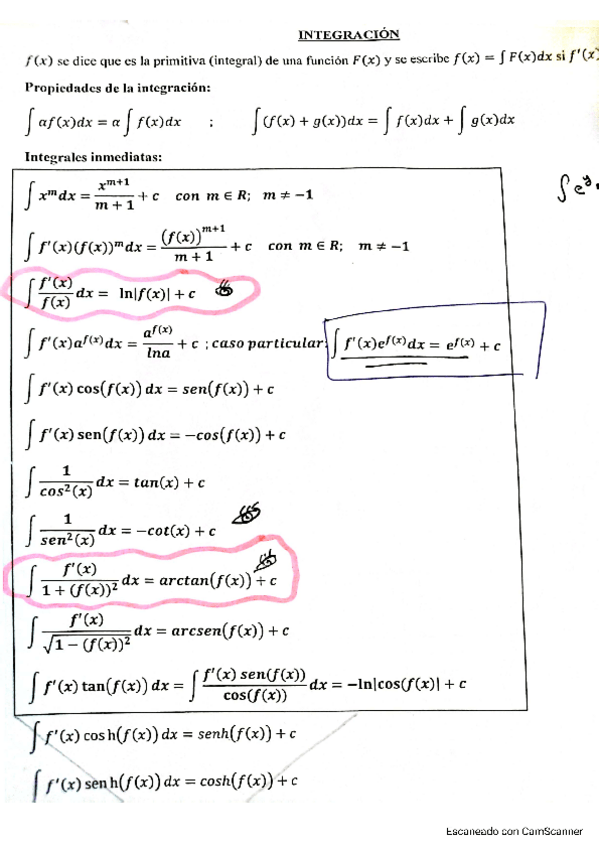 INTEGRACIÓN
f(x) se dice que es la primitiva (integral) de una función F(x) y se escribe f(x) = ∫ F(x)dx si f'(x)
Propiedades de la integración:
∫ αf(x)dx = α ∫ f(x)dx ; ∫(f(x) + g(x))dx = ∫ f(x)dx + ∫ g(x)dx
Integrales inmediatas:
∫ x^m dx = x^(m+1)/(m+1) + c con m ∈ R; m ≠ −1
∫e^y
∫ f'(x)(f(x))^m dx = (f(x))^(m+1)/(m+1) + c con m ∈ R; m ≠ −1
∫ f'(x)/f(x) dx = ln|f(x)| + c
∫ f'(x)a^f(x) dx = a^f(x)/lna + c ; caso particular: ∫ f'(x)e^f(x) dx = e^f(x) + c
∫ f'(x) cos(f(x)) dx = sen(f(x)) + c
∫ f'(x) sen(f(x)) dx = −cos(f(x)) + c
∫ 1/cos²(x) dx = tan(x) + c
∫ 1/sen²(x) dx = −cot(x) + c
∫ f'(x)/(1 + (f(x))²) dx = arctan(f(x)) + c
∫ f'(x)/√(1 − (f(x))²) dx = arcsen(f(x)) + c
∫ f'(x) tan(f(x)) dx = ∫ f'(x) sen(f(x))/cos(f(x)) dx = −ln|cos(f(x)| + c
∫ f'(x) cosh(f(x)) dx = senh(f(x)) + c
∫ f'(x) senh(f(x)) dx = cosh(f(x)) + c
Escaneado con CamScanner